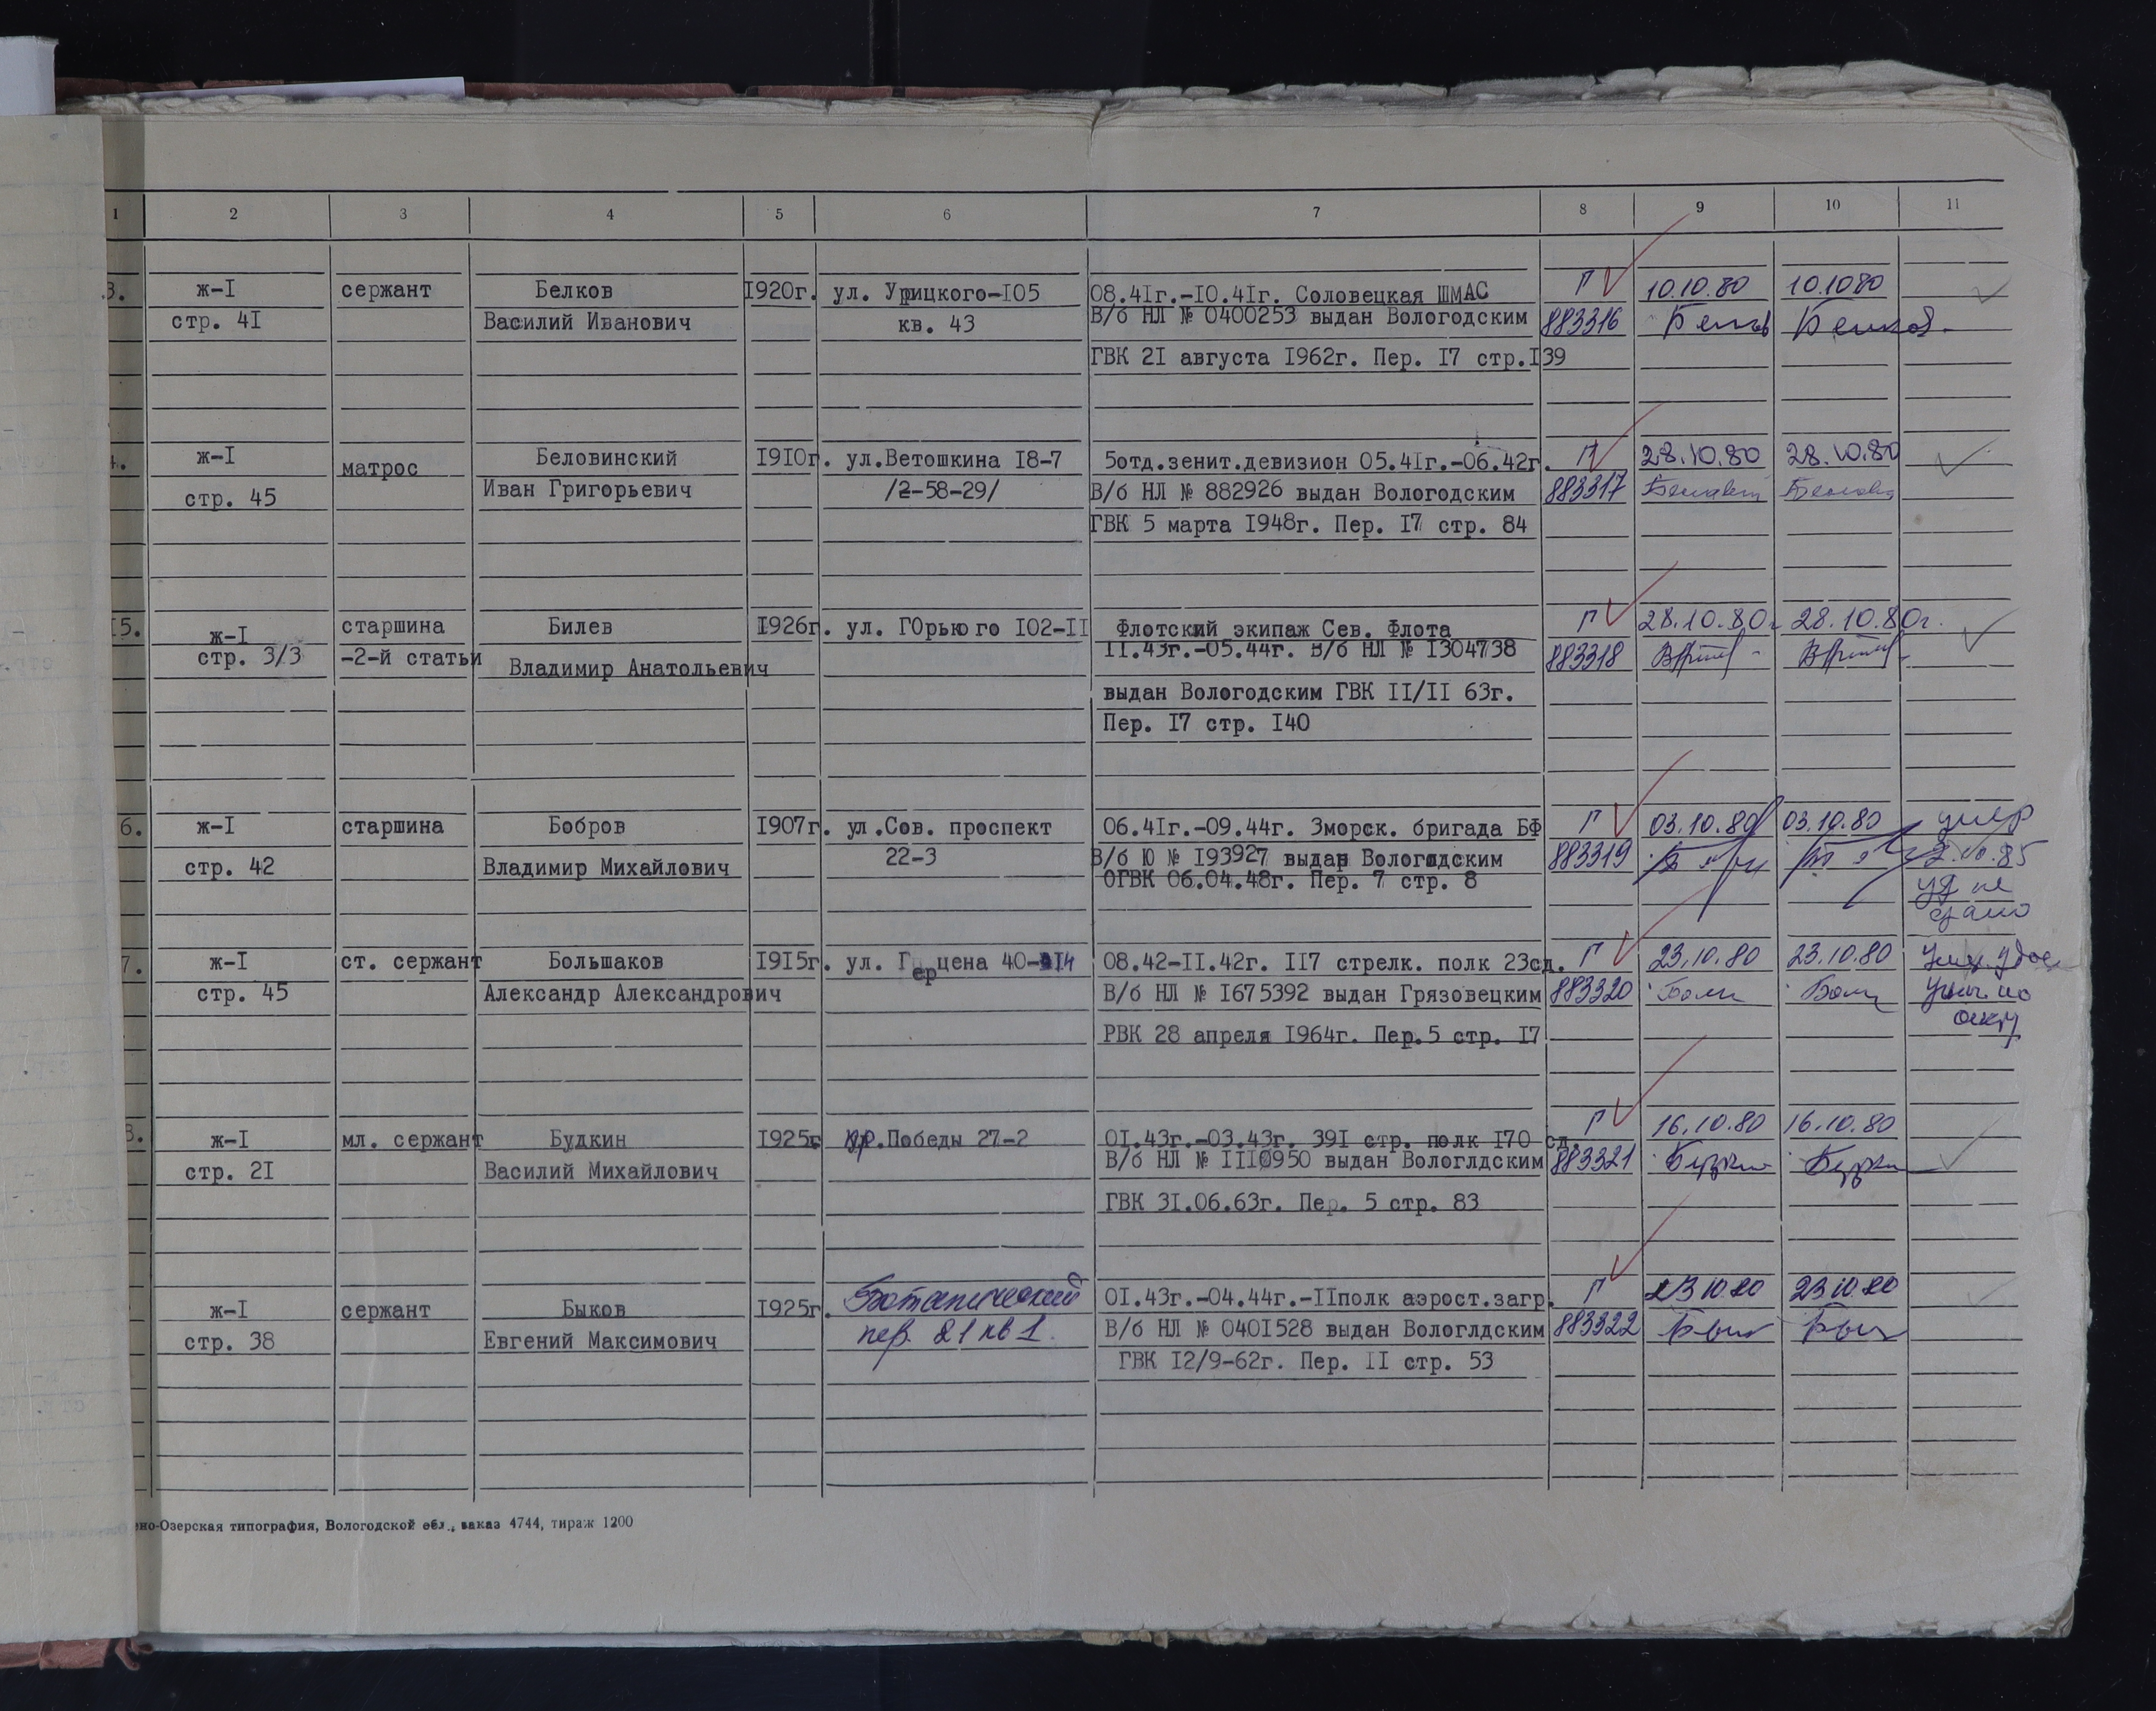 1 2 3 4 5 6 7 8 9 10 11
3. ж-I сержант Белков I920г. ул. Урицкого-I05 08.4Iг.-I0.4Iг. Соловецкая ШМАС Г 10.10.80 10.10 80
стр. 4I Василий Иванович кв. 43 В/б НЛ № 0400253 выдан Вологодским 883316
ГВК 2I августа I962г. Пер. I7 стр.I39
4. ж-I матрос Беловинский I9I0г. ул.Ветошкина I8-7 5отд.зенит.девизион 05.4Iг.-06.42г. П 28.10.80 28.10.80
стр. 45 Иван Григорьевич /2-58-29/ В/б НЛ № 882926 выдан Вологодским 883317
ГВК 5 марта I948г. Пер. I7 стр. 84
I5. ж-I старшина Билев I926г. ул. ГОрького I02-II Флотский экипаж Сев. Флота Г 28.10.80г 28.10.80г.
стр. 3/3 -2-й статьи Владимир Анатольевич II.43г.-05.44г. В/б НЛ № I304738 883318
выдан Вологодским ГВК II/II 63г.
Пер. I7 стр. I40
6. ж-I старшина Бобров I907г. ул.Сов. проспект 06.4Iг.-09.44г. Зморск. бригада БФ Г 03.10.80 03.10.80 умер
стр. 42 Владимир Михайлович 22-3 В/б Ю № I93927 выдан Вологодским 883319
ОГВК 06.04.48г. Пер. 7 стр. 8 уд не
сдано
7. ж-I ст. сержант Большаков I9I5г. ул. Герцена 40- 08.42-II.42г. II7 стрелк. полк 23сд. Г 23.10.80 23.10.80
стр. 45 Александр Александрович В/б НЛ № I675392 выдан Грязовецким 883320
РВК 28 апреля I964г. Пер.5 стр. I7
8. ж-I мл. сержант Будкин I925г Победы 27-2 0I.43г.-03.43г. 39I стр. полк I70 сд. Г 16.10.80 16.10.80
стр. 2I Василий Михайлович В/б НЛ № III0950 выдан Вологлдским 883321
ГВК 3I.06.63г. Пер. 5 стр. 83
ж-I сержант Быков I925г. Ботанический 0I.43г.-04.44г.-IIполк аэрост.загр. Г 23 10 80 23 10 80
стр. 38 Евгений Максимович пер. 21 кв 1. В/б НЛ № 040I528 выдан Вологлдским 883322
ГВК I2/9-62г. Пер. II стр. 53
но-Озерская типография, Вологодской обл., заказ 4744, тираж 1200